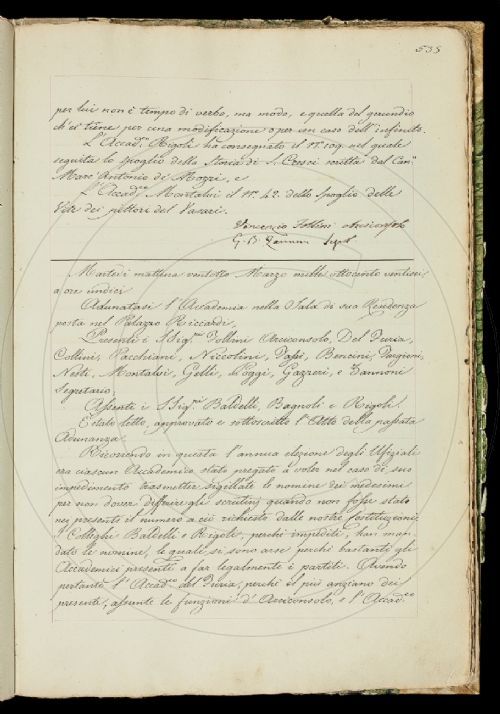 535
per lui non è tempo di verbo, ma modo, e quella del gerundio
ch'ei tiene per una modificazione o per un caso dell'infinito.
L'Accad.co Rigoli ha consegnato il n.° 109. nel quale
seguita lo Spoglio della Storia di S. Cresci scritta dal Can.co
Marc' Antonio de' Mozzi, e
l'Accad.co Montalvi il n.° 42. dello Spoglio delle
Vite dei pittori del Vasari.
Vincenzio Follini Arciconsolo
G. B. Zannoni Segret.
Martedì mattina ventotto Marzo mille ottocento ventisei
a ore undici
Adunatasi l'Accademia nella Sala di sua Residenza
posta nel Palazzo Riccardi.
Presenti i SSig.ri Follini Arciconsolo, Del Furia,
Collini, Pacchiani, Niccolini, Papi, Bencini, Targioni,
Nesti, Montalvi, Gelli, Poggi, Gazzeri, e Zannoni
Segretario.
Assenti i SSig.ri Baldelli, Bagnoli e Rigoli.
È stato letto, approvato e sottoscritto l'Atto della passata
Adunanza.
Ricorrendo in questa l'annua elezione degli Ufiziali
era ciascun Accademico stato pregato a voler nel caso di suo
impedimento trasmetter sigillate le nomine dei medesimi
per non dover differire gli scrutinj quando non fosse stato
nei presenti il numero a ciò richiesto dalle nostre Costituzioni.
I Colleghi Baldelli e Rigoli, perchè impediti, han man-
dato le nomine, le quali si sono arse perchè bastanti gli
Accademici presenti a far legalmente i partiti. Avendo
pertanto l'Accad.co del Furia, perchè il più anziano dei
presenti, assunte le funzioni d'Arciconsolo, e l'Accad.co